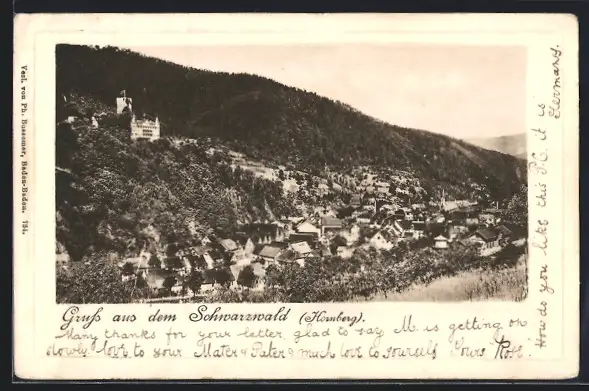 Verl. von Ph. Bussemer, Baden-Baden. 734.
Gruß aus dem Schwarzwald (Hornberg).
Many thanks for your letter, glad to say M is getting on
slowly. Love to your Mater & Pater & much love to yourself Yours Rose.
How do you like this PC. it is
Germany.